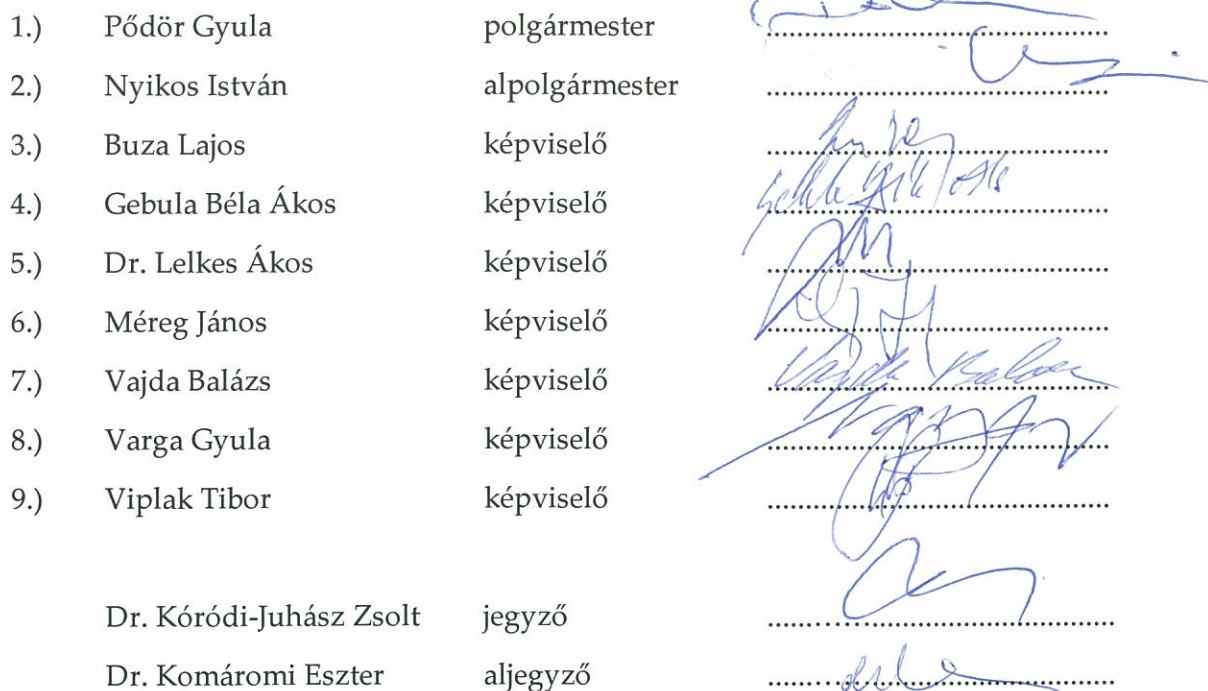 1.) Pődör Gyula polgármester ........................
2.) Nyikos István alpolgármester ........................
3.) Buza Lajos képviselő ........................
4.) Gebula Béla Ákos képviselő ........................
5.) Dr. Lelkes Ákos képviselő ........................
6.) Méreg János képviselő ........................
7.) Vajda Balázs képviselő Vajda Balázs
8.) Varga Gyula képviselő ........................
9.) Viplak Tibor képviselő ........................
Dr. Kóródi-Juhász Zsolt jegyző ........................
Dr. Komáromi Eszter aljegyző ........................